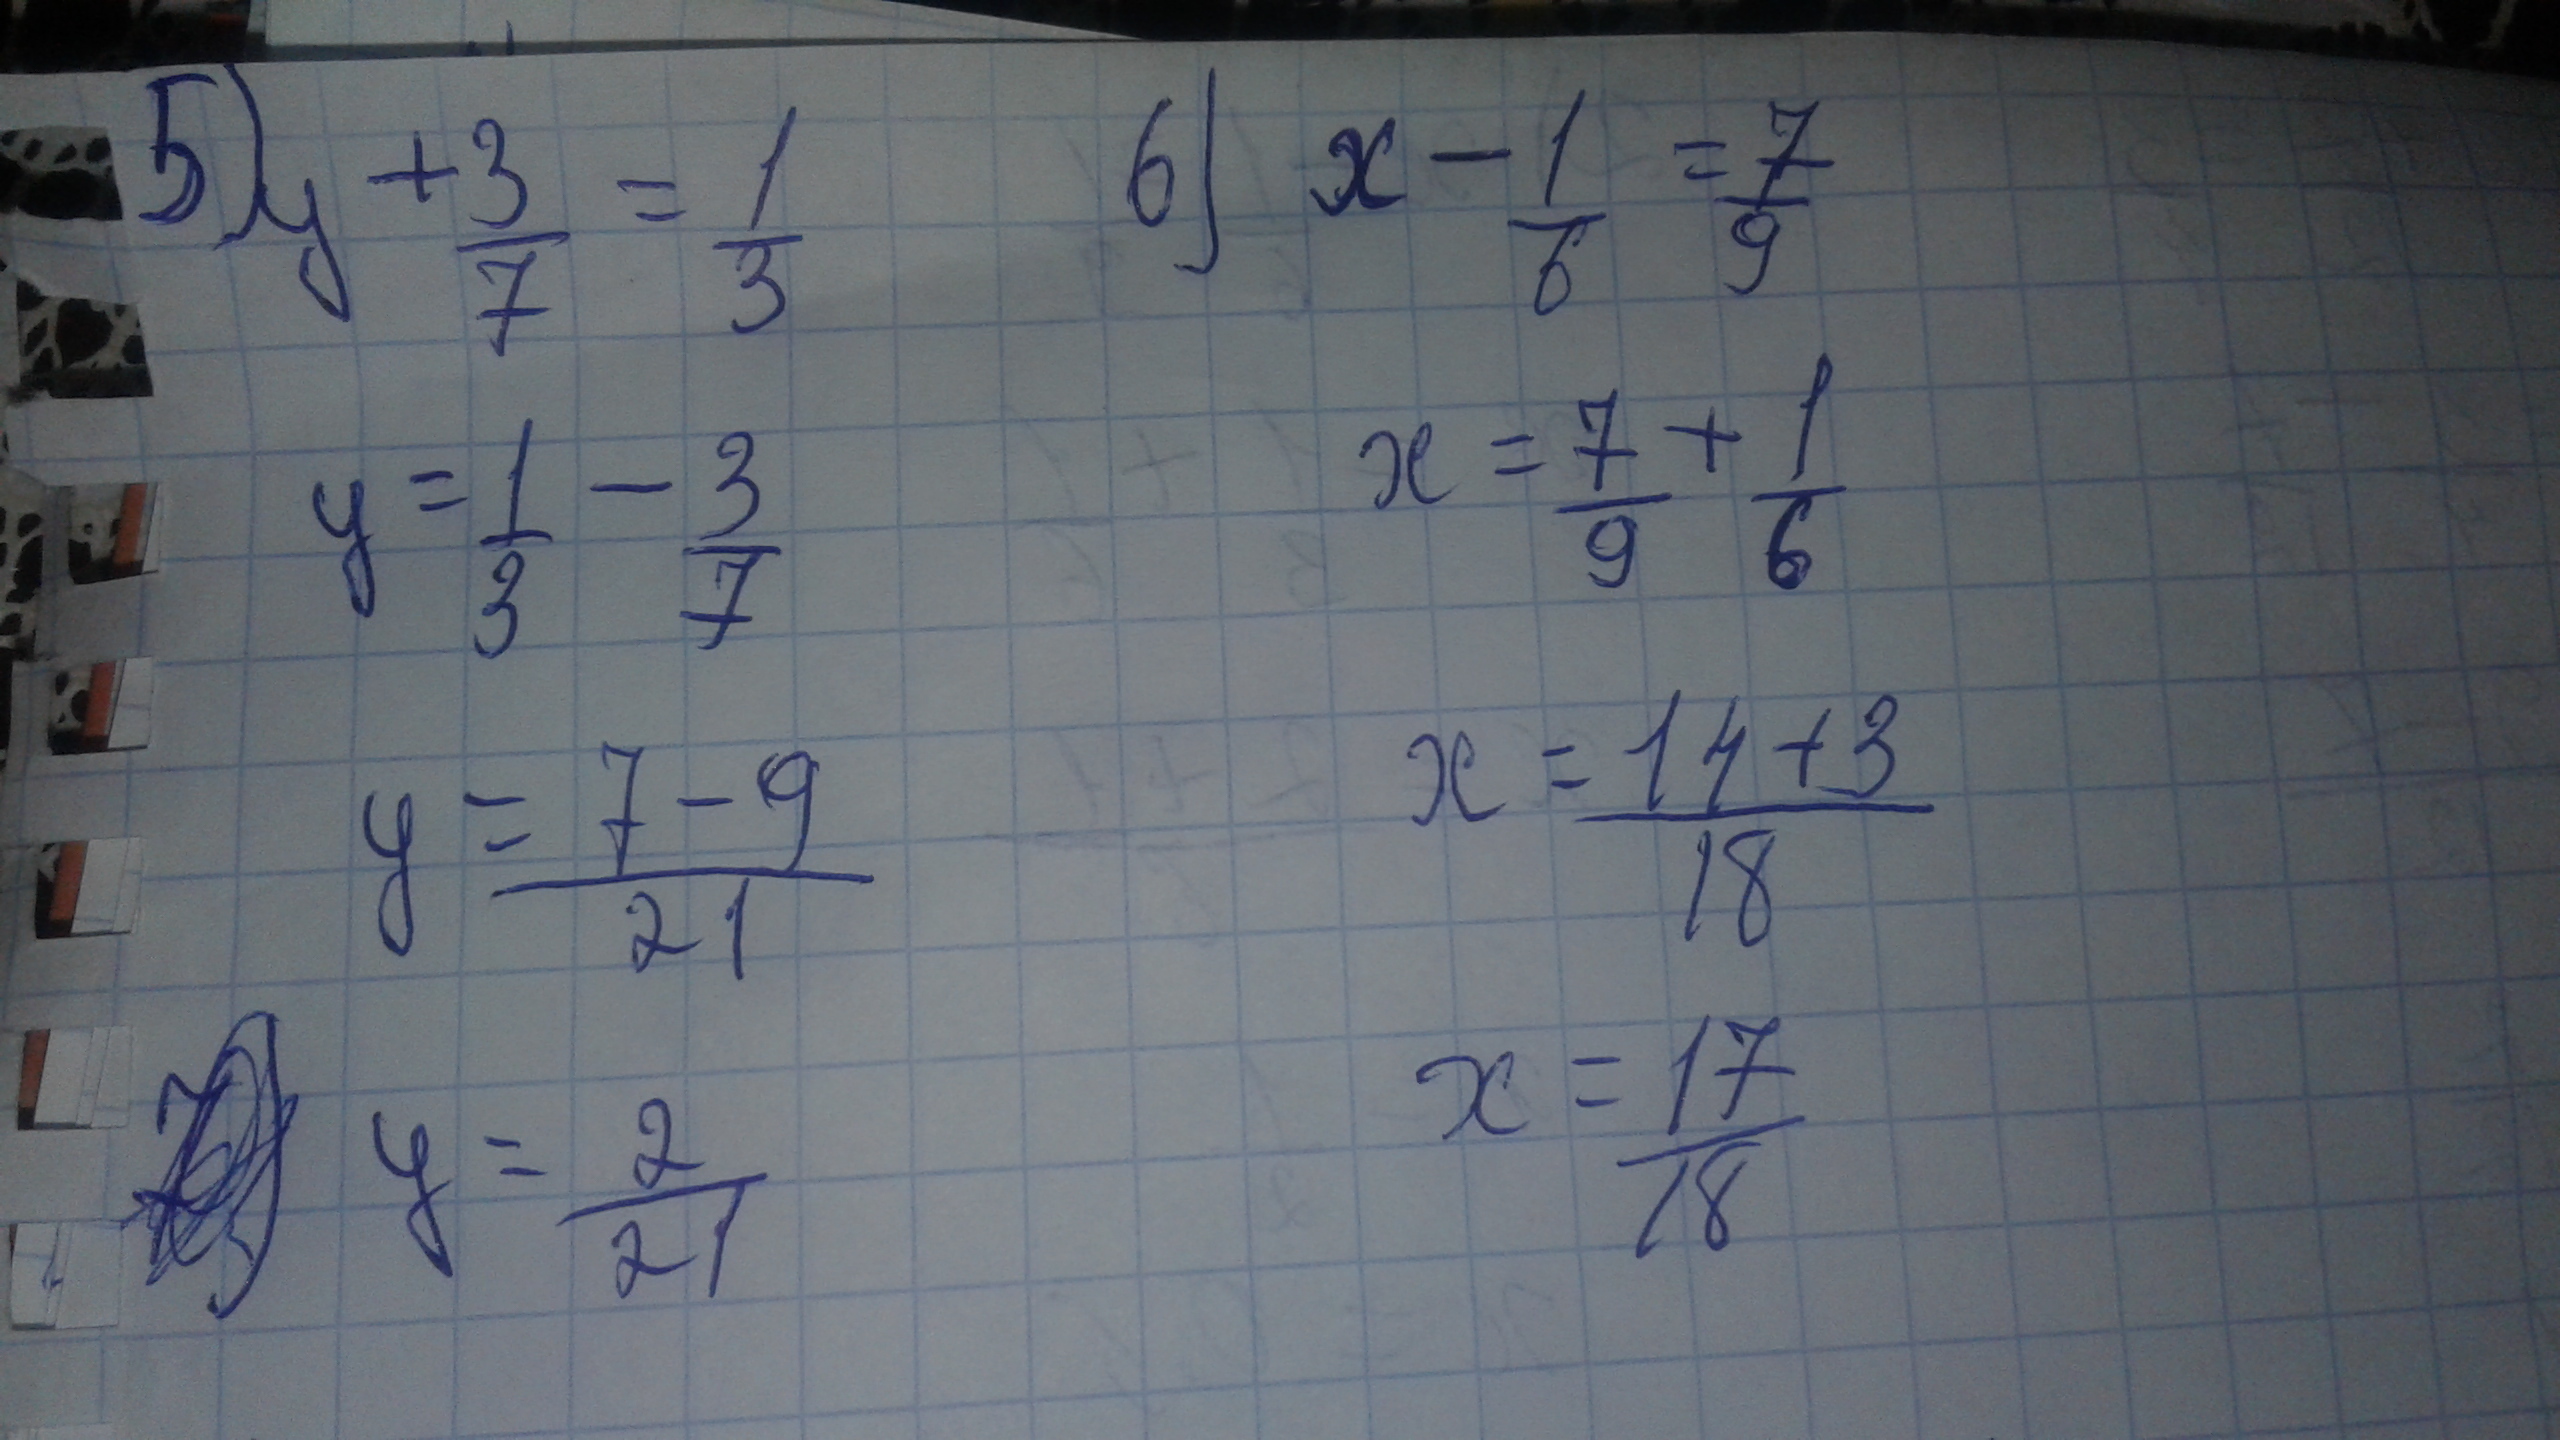 5) y + 3/7 = 1/3
y = 1/3 - 3/7
y = (7 - 9)/21
y = 2/21
6) x - 1/6 = 7/9
x = 7/9 + 1/6
x = (14 + 3)/18
x = 17/18